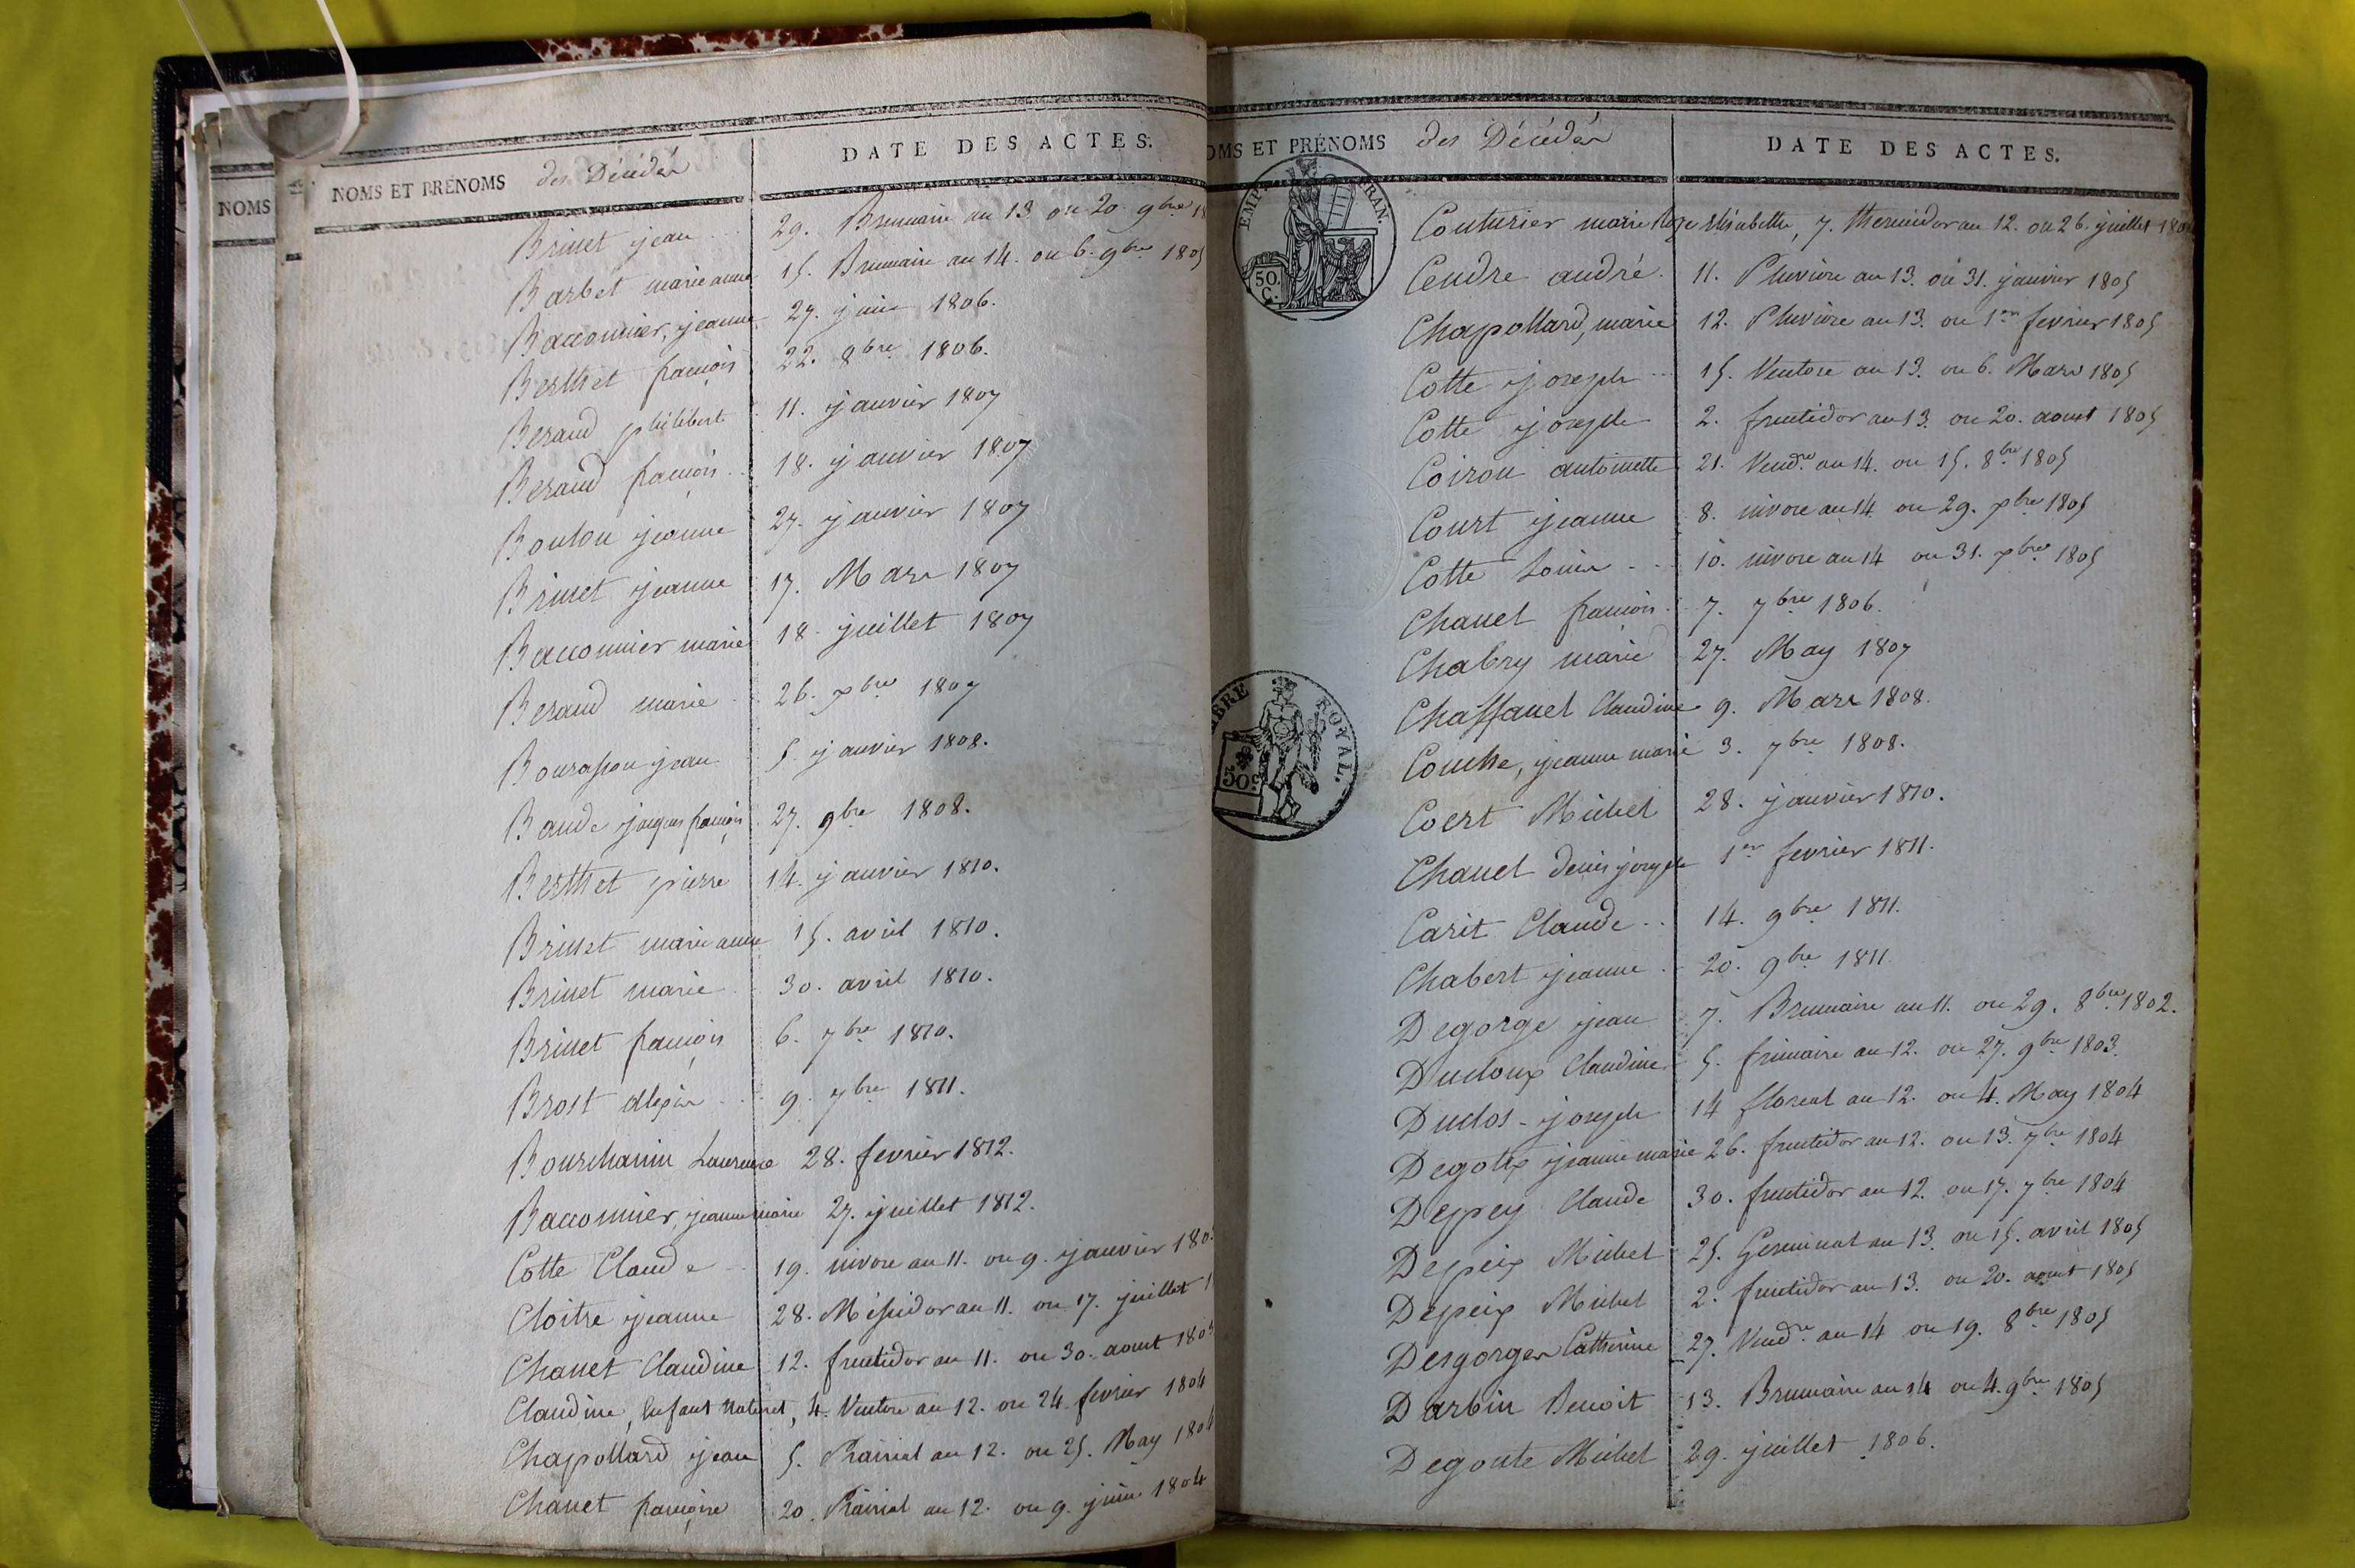 NOMS
NOMS ET PRÉNOMS des Décédés
DATE DES ACTES.
Brinet jean 29. Brumaire an 13 ou 20. 9bre 18
Barbet marie anne 15. Brumaire an 14. ou 6. 9bre 1805
Bacconnier, jeanne 27. juin 1806.
Berthet françois 22. 8bre 1806.
Beraud philibert 11. janvier 1807
Beraud françois 18. janvier 1807
Boulon jeanne 27. janvier 1807
Brinet jeanne 17. Mars 1807
Bacconnier marie 18. juillet 1807
Beraud marie 26. xbre 1807
jean 5. janvier 1808.
Baude jacques françois 27. 9bre 1808.
Berthet pierre 14. janvier 1810.
Brinet marie anne 15. avril 1810.
Brinet marie 30. avril 1810.
Brinet françois 6. 7bre 1810.
Brost alexis 9. 7bre 1811.
Bourchanin Laurence 28. fevrier 1812.
Bacconnier, jeanne marie 27. juillet 1812.
Cotte Claude 19. nivose an 11. ou 9. janvier 180
Cloitre jeanne 28. Messidor an 11. ou 17. juillet 1
Chanet Claudine 12. fructidor an 11. ou 30. aoust 180
Claudine, Enfant Naturel, 4. Ventose an 12. ou 24. fevrier 1804
Chapollard jean 5. Prairial an 12. ou 25. May 1804
Chanet françoise 20. Prairial an 12. ou 9. juin 1804
OMS ET PRÉNOMS des Décédés
DATE DES ACTES.
EMP. FRAN.
50. C.
Couturier marie Roze Elisabethe, 7. thermidor an 12. ou 26. juillet 180
Cendre andré 11. Pluviose an 13. ou 31. janvier 1805
Chapollard, marie 12. Pluviose an 13. ou 1er fevrier 1805
Cotte joseph 15. Ventose an 13. ou 6. Mars 1805
Cotte joseph 2. fructidor an 13. ou 20. aoust 1805
Coiron antoinette 21. Vendre an 14. ou 15. 8bre 1805
Court jeanne 8. nivose an 14 ou 29. xbre 1805
Cotte Louise 10. nivose an 14 ou 31. xbre 1805
Chanel françois 7. 7bre 1806.
Chabry marie 27. May 1807
MBRE ROYAL.
50c
Chaffanel Claudine 9. Mars 1808.
Couche, jeanne marie 3. 7bre 1808.
Coert Michel 28. janvier 1810.
Chanel denis joseph 1er fevrier 1811.
Carit Claude 14. 9bre 1811.
Chabert jeanne 20. 9bre 1811.
Degorge jean 7. Brumaire an 11. ou 29. 8bre 1802.
Ducloux Claudine 5. frimaire an 12. ou 27. 9bre 1803.
Duclos joseph 14 floreal an 12. ou 4. May 1804
jeanne marie 26. fructidor an 12. ou 13. 7bre 1804
Deprey Claude 30. fructidor an 12. ou 17. 7bre 1804
Depeix Michel 25. Germinal an 13. ou 15. avril 1805
Depeix Michel 2. fructidor an 13. ou 20. aoust 1805
Desgorges Catherine 27. Vendre an 14 ou 19. 8bre 1805
Darbin Benoit 13. Brumaire an 14 ou 4. 9bre 1805
Degoute Michel 29. juillet 1806.